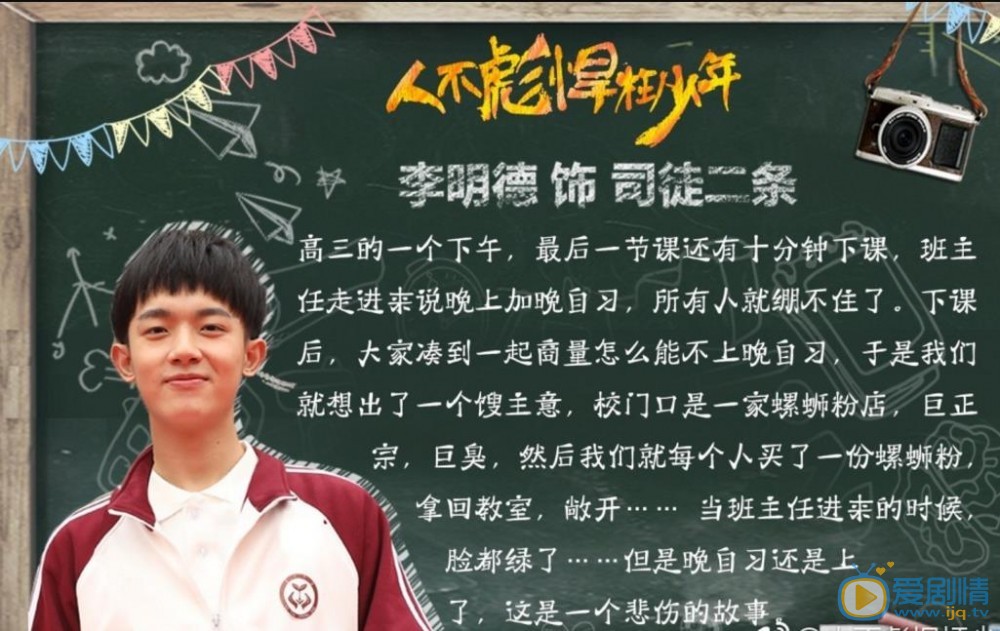 人不彪悍枉少年
李明德 饰 司徒二条
高三的一个下午，最后一节课还有十分钟下课，班主
任走进来说晚上加晚自习，所有人就绷不住了。下课
后，大家凑到一起商量怎么能不上晚自习，于是我们
就想出了一个馊主意，校门口是一家螺蛳粉店，巨正
宗，巨臭，然后我们就每个人买了一份螺蛳粉，
拿回教室，敞开…… 当班主任进来的时候，
脸都绿了……但是晚自习还是上
了，这是一个悲伤的故事。
爱剧情
www.ijq.tv